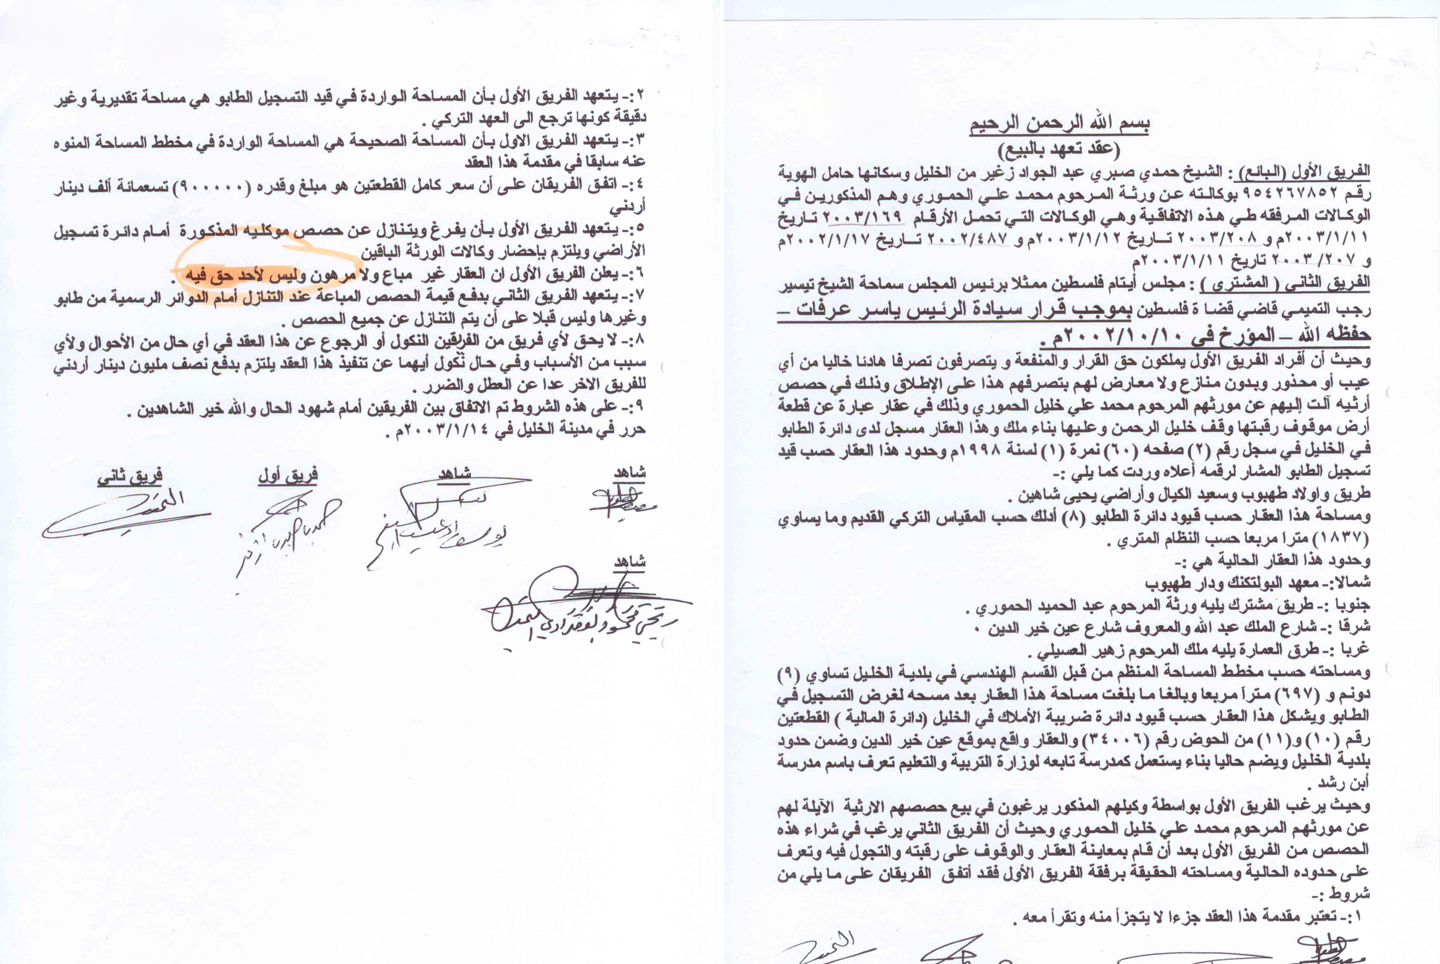 بسم الله الرحمن الرحيم
(عقد تعهد بالبيع)
الفريق الأول (البائع) : الشيخ حمدي صبري عبد الجواد زغير من الخليل وسكانها حامل الهوية
رقم ٩٥٤٢٦٧٨٥٢ بوكالته عن ورثة المرحوم محمد علي الحموري وهم المذكورين في
الوكالات المرفقه طي هذه الاتفاقية وهي الوكالات التي تحمل الأرقام ٢٠٠٣/١٦٩ تاريخ
٢٠٠٣/١/١١م و ٢٠٠٣/٢٠٨ تاريخ ٢٠٠٣/١/١٢م و ٢٠٠٢/٤٨٧ تاريخ ٢٠٠٢/١/١٧م
و ٢٠٠٣/٢٠٧ تاريخ ٢٠٠٣/١/١١م
الفريق الثاني ( المشتري ) : مجلس أيتام فلسطين ممثلا برئيس المجلس سماحة الشيخ تيسير
رجب التميمي قاضي قضاة فلسطين بموجب قرار سيادة الرئيس ياسر عرفات –
حفظه الله – المؤرخ في ٢٠٠٢/١٠/١٠م .
وحيث أن أفراد الفريق الأول يملكون حق القرار والمنفعة و يتصرفون تصرفا هادنا خاليا من أي
عيب أو محذور وبدون منازع ولا معارض لهم بتصرفهم هذا على الإطلاق وذلك في حصص
أرثيه آلت إليهم عن مورثهم المرحوم محمد علي خليل الحموري وذلك في عقار عبارة عن قطعة
أرض موقوف رقبتها وقف خليل الرحمن وعليها بناء ملك وهذا العقار مسجل لدى دائرة الطابو
في الخليل في سجل رقم (٢) صفحه (٦٠) نمرة (١) لسنة ١٩٩٨م وحدود هذا العقار حسب قيد
تسجيل الطابو المشار لرقمه أعلاه وردت كما يلي :-
طريق واولاد طهبوب وسعيد الكيال وأراضي يحيى شاهين .
ومساحة هذا العقار حسب قيود دائرة الطابو (٨) أدلك حسب المقياس التركي القديم وما يساوي
(١٨٣٧) مترا مربعا حسب النظام المتري .
وحدود هذا العقار الحالية هي :-
شمالا:- معهد البولتكنك ودار طهبوب
جنوبا :- طريق مشترك يليه ورثة المرحوم عبد الحميد الحموري .
شرقا :- شارع الملك عبد الله والمعروف شارع عين خير الدين .
غربا :- طرق العمارة يليه ملك المرحوم زهير العسيلي .
ومساحته حسب مخطط المساحة المنظم من قبل القسم الهندسي في بلدية الخليل تساوي (٩)
دونم و (٦٩٧) متراً مربعا وبالغا ما بلغت مساحة هذا العقار بعد مسحه لغرض التسجيل في
الطابو ويشكل هذا العقار حسب قيود دائرة ضريبة الأملاك في الخليل (دائرة المالية ) القطعتين
رقم (١٠) و(١١) من الحوض رقم (٣٤٠٠٦) والعقار واقع بموقع عين خير الدين وضمن حدود
بلدية الخليل ويضم حاليا بناء يستعمل كمدرسة تابعه لوزارة التربية والتعليم تعرف باسم مدرسة
أبن رشد .
وحيث يرغب الفريق الأول بواسطة وكيلهم المذكور يرغبون في بيع حصصهم الارثية الآيلة لهم
عن مورثهم المرحوم محمد علي خليل الحموري وحيث أن الفريق الثاني يرغب في شراء هذه
الحصص من الفريق الأول بعد أن قام بمعاينة العقار والوقوف على رقبته والتجول فيه وتعرف
على حدوده الحالية ومساحته الحقيقة برفقة الفريق الأول فقد أتفق الفريقان على ما يلي من
شروط :-
١:- تعتبر مقدمة هذا العقد جزءا لا يتجزأ منه وتقرأ معه .
٢:- يتعهد الفريق الأول بأن المساحة الواردة في قيد التسجيل الطابو هي مساحة تقديرية وغير
دقيقة كونها ترجع الى العهد التركي .
٣:- يتعهد الفريق الاول بأن المساحة الصحيحة هي المساحة الواردة في مخطط المساحة المنوه
عنه سابقا في مقدمة هذا العقد
٤:- اتفق الفريقان على أن سعر كامل القطعتين هو مبلغ وقدره (٩٠٠٠٠٠) تسعمائة ألف دينار
أردني
٥:- يتعهد الفريق الأول بأن يفرغ ويتنازل عن حصص موكليه المذكورة أمام دائرة تسجيل
الأراضي ويلتزم بإحضار وكالات الورثة الباقين
٦:- يعلن الفريق الأول ان العقار غير مباع ولا مرهون وليس لأحد حق فيه .
٧:- يتعهد الفريق الثاني بدفع قيمة الحصص المباعة عند التنازل أمام الدوائر الرسمية من طابو
وغيرها وليس قبلا على أن يتم التنازل عن جميع الحصص .
٨:- لا يحق لأي فريق من الفريقين النكول أو الرجوع عن هذا العقد في أي حال من الأحوال ولأي
سبب من الأسباب وفي حال نكول أيهما عن تنفيذ هذا العقد يلتزم بدفع نصف مليون دينار أردني
للفريق الاخر عدا عن العطل والضرر .
٩:- على هذه الشروط تم الاتفاق بين الفريقين أمام شهود الحال والله خير الشاهدين .
حرر في مدينة الخليل في ٢٠٠٣/١/١٤م .
شاهد شاهد فريق أول فريق ثاني
شاهد